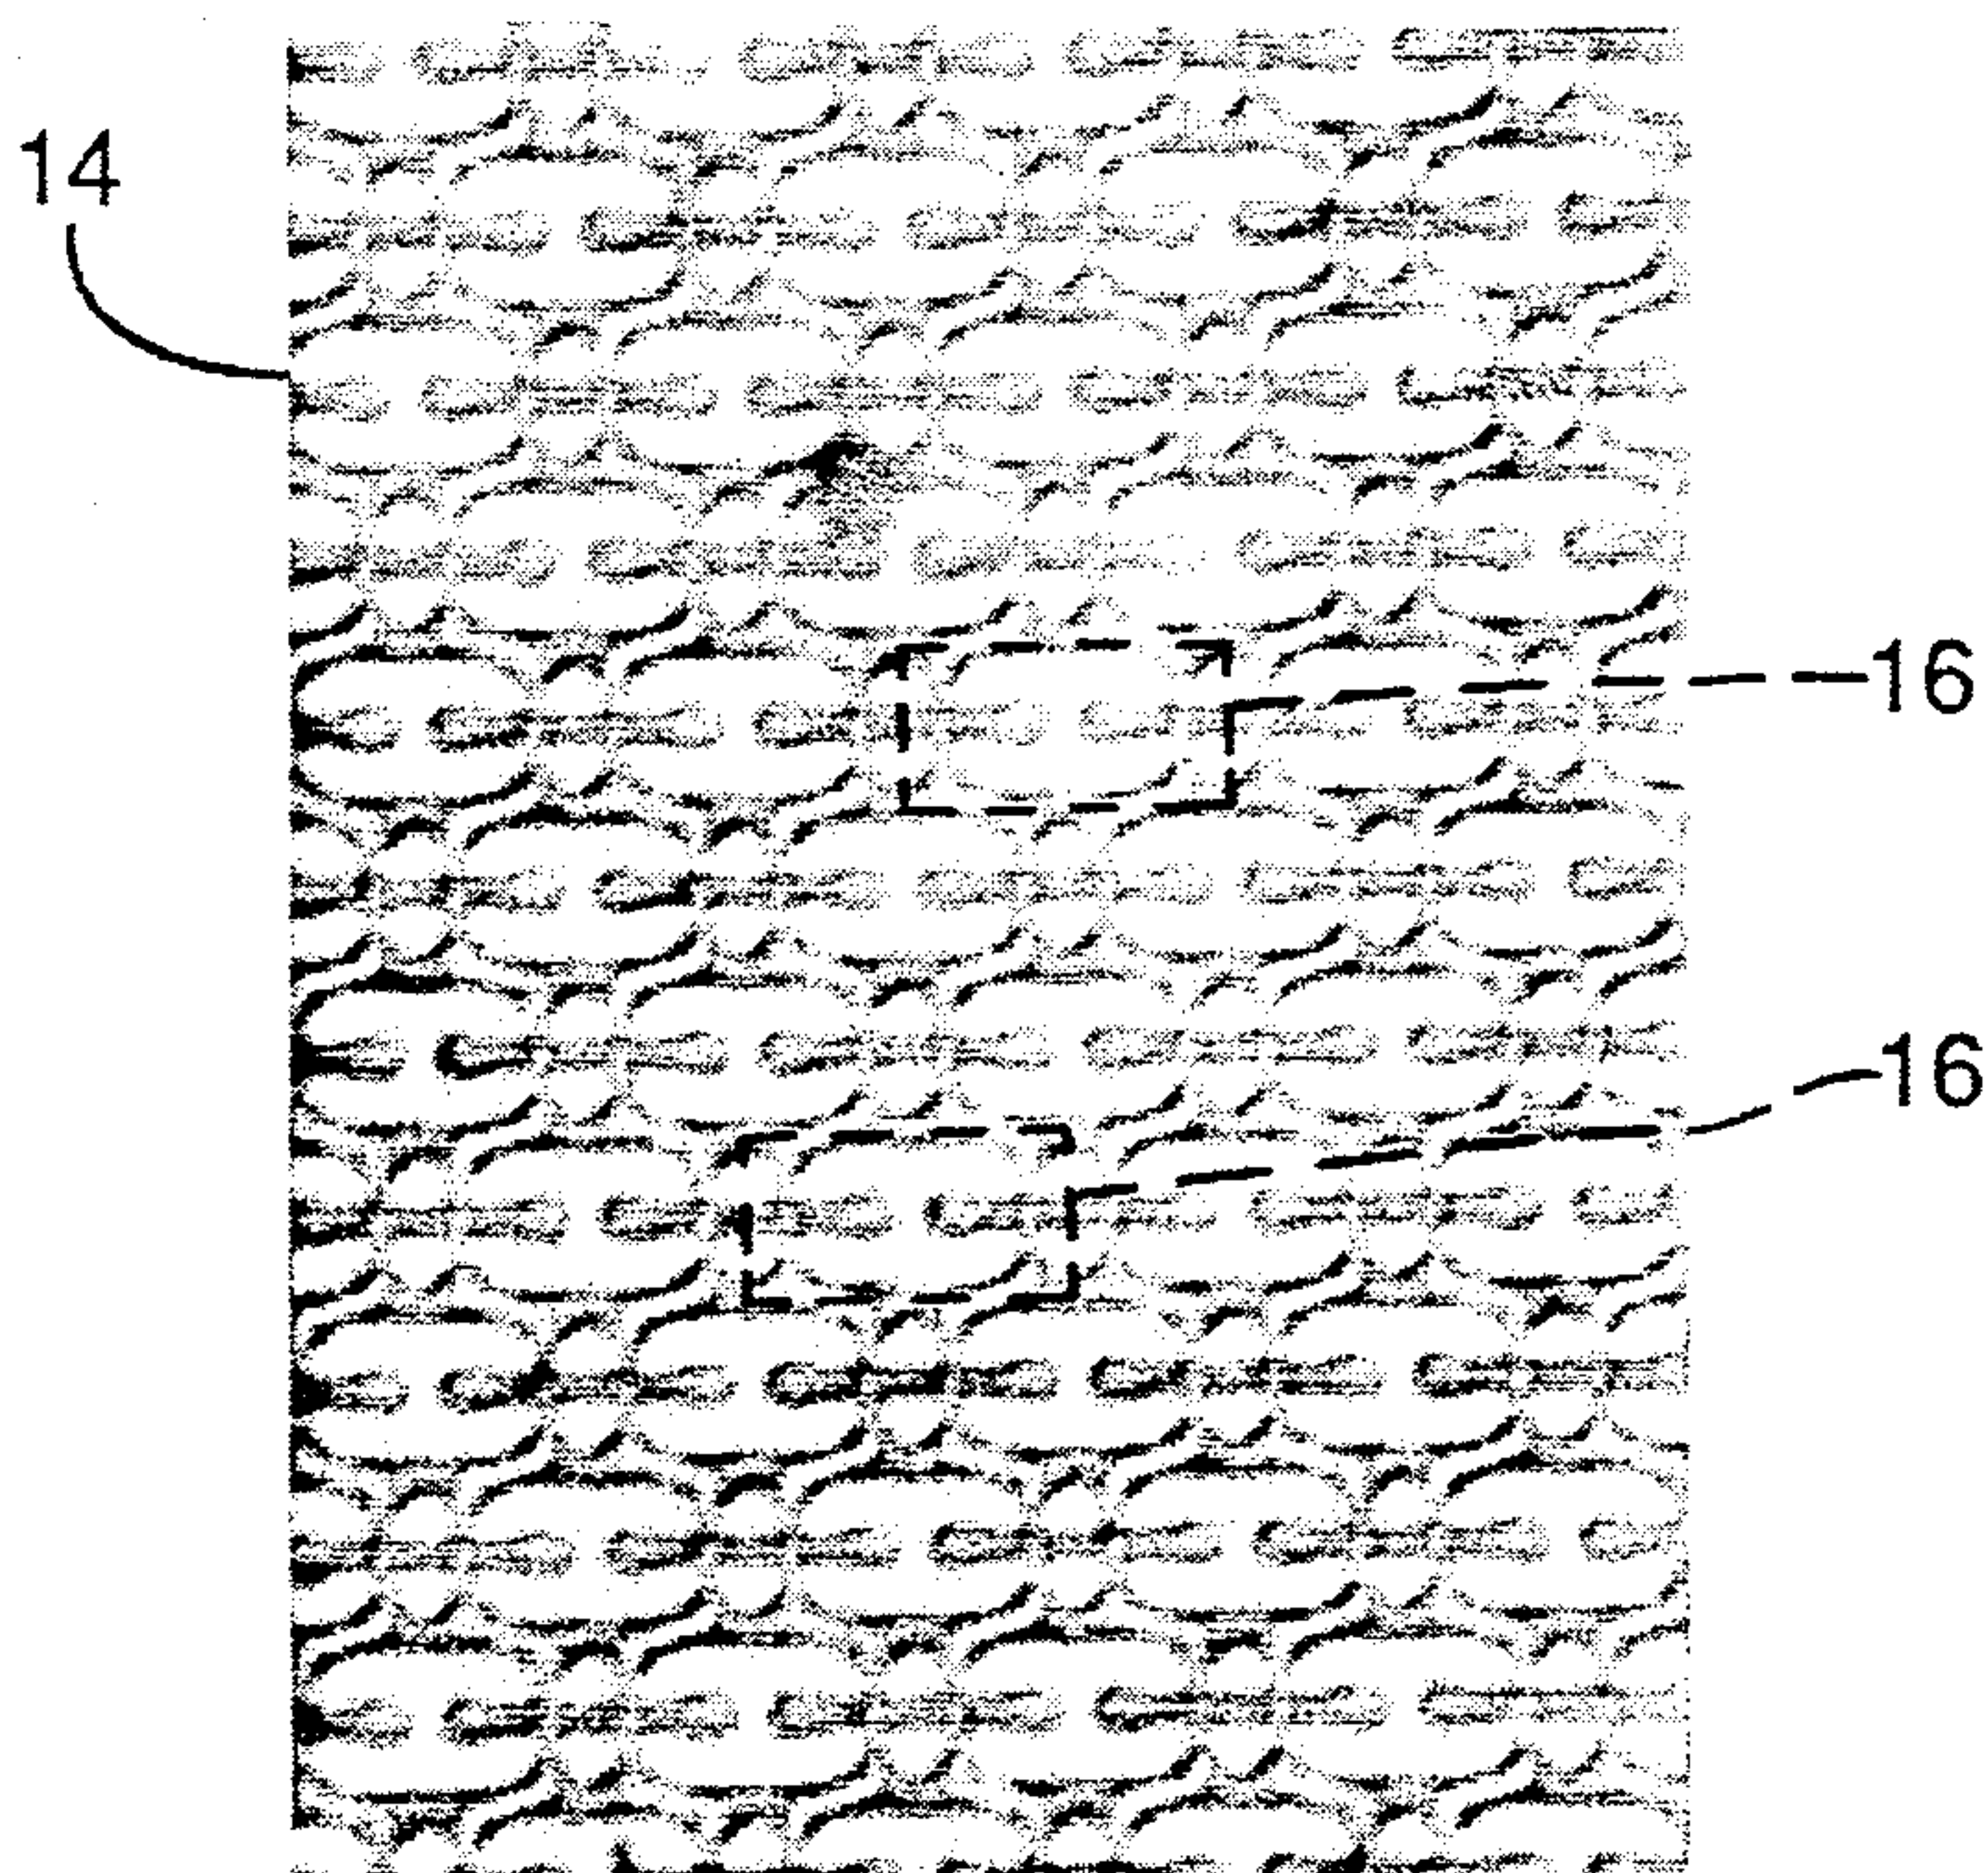 14
16
16